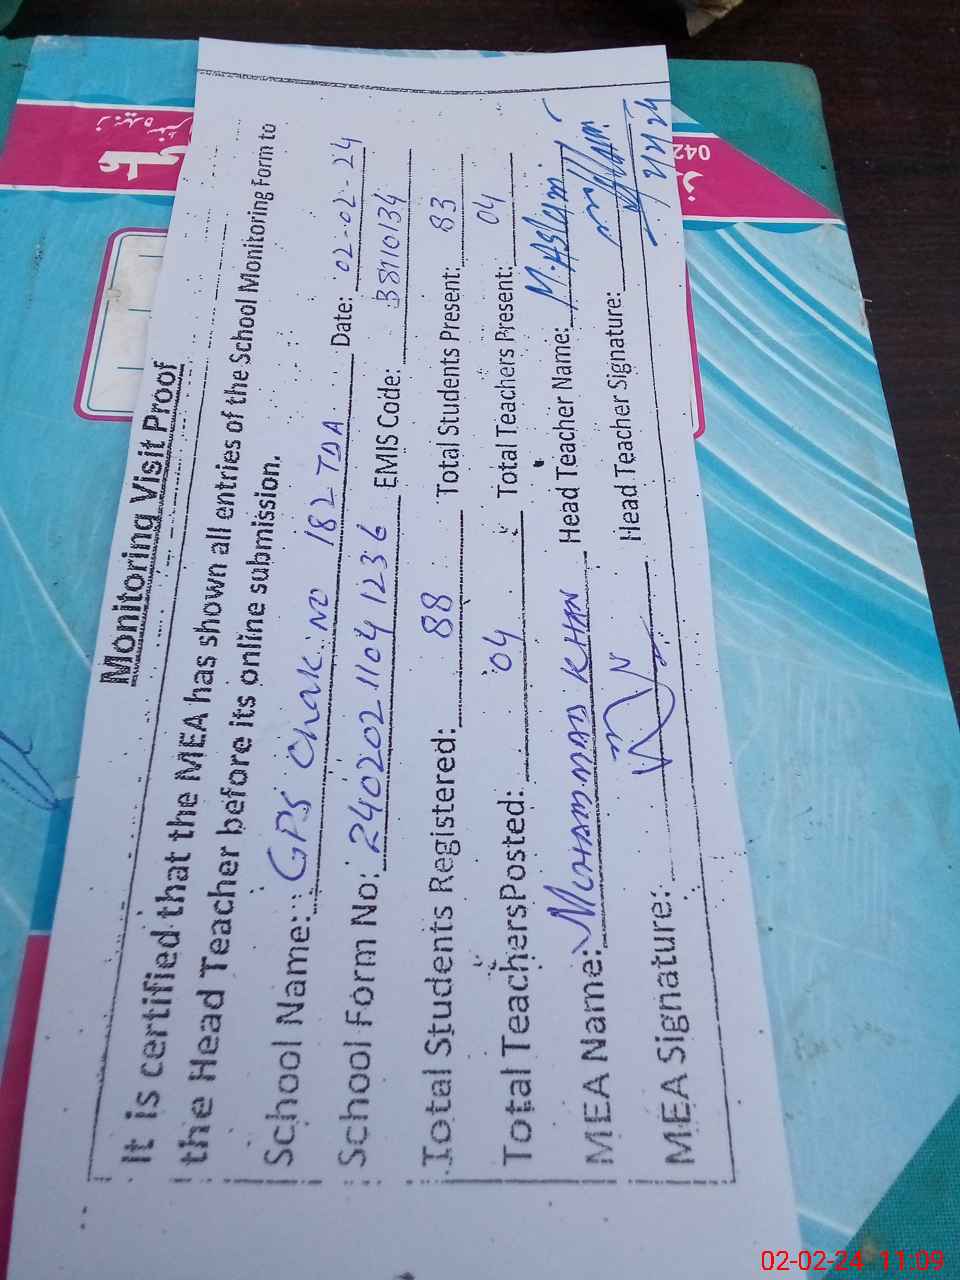 Monitoring Visit Proof
It is certified that the MEA has shown all entries of the School Monitoring Form to
the Head Teacher before its online submission.
School Name: GPS Chak NO 182 TDA Date: 02-02-24
School Form No: 240202 1104 1236 EMIS Code: 38110134
Total Students Registered: 88 Total Students Present: 83
Total TeachersPosted: 04 Total Teachers Present: 04
MEA Name: Head Teacher Name: M. ASlam
MEA Signature: Head Teacher Signature:
042
02-02-24 11:09